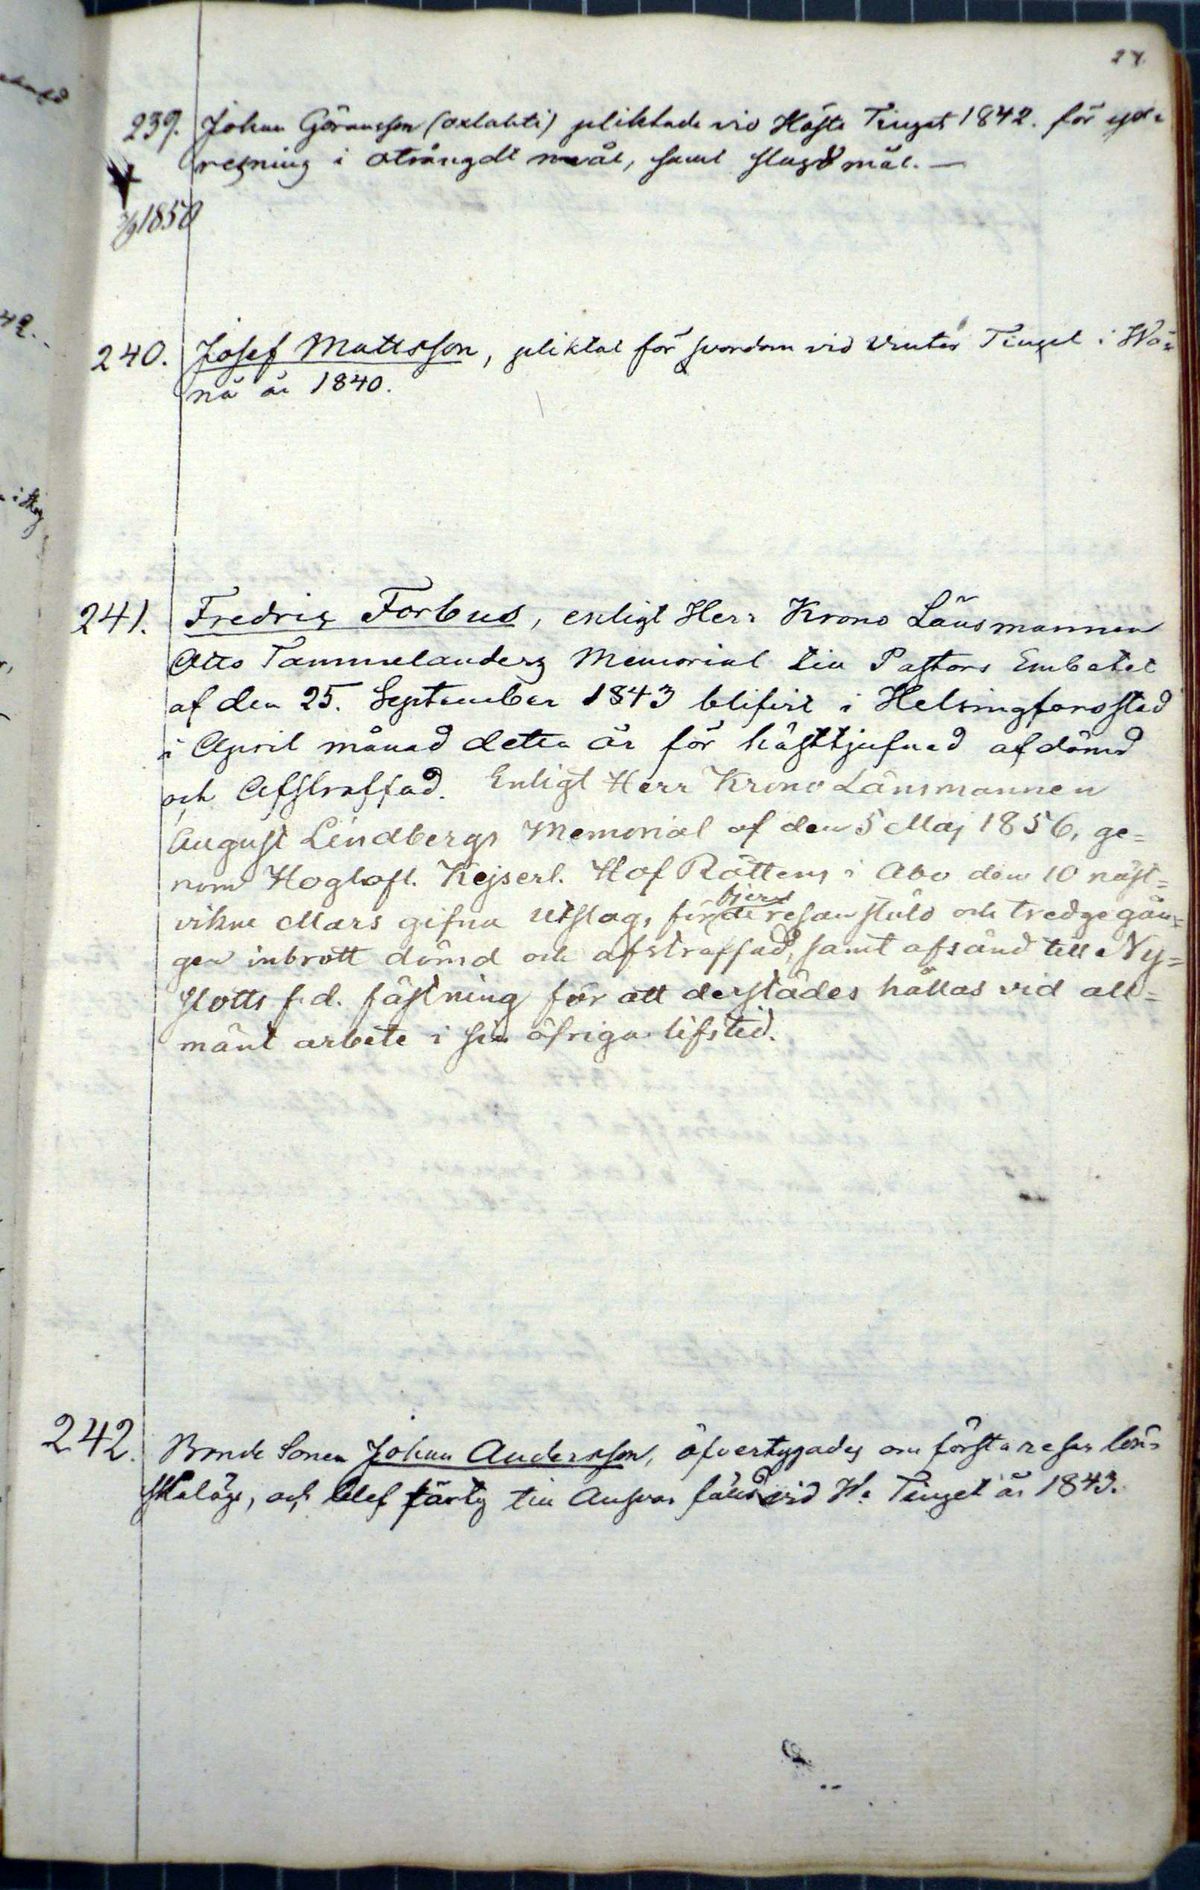 27.
239. Johan Göransson (oxlahti) pliktade vid Höste Tinget 1842. för
i oträngdt mål, samt slagsmål. —
1850
240. Josef Mattsson, pliktat för svordom vid Vinter Tinget i Wå=
nå år 1840.
241. Fredrig Forbus, enligt Herr Krono Länsmannen
Otto Tammelanders Memorial till Pastors Embetet
af den 25. September 1843 blifvit i Helsingforsstad
i April månad detta år för hästtjufnad afdömd
och Afstraffad. Enligt Herr Krono Länsmannen
August Lindbergs Memorial af den 5 Maj 1856, ge=
nom Höglofl. Kejserl. Hof Rättens i Åbo den 10 näst=
vikne Mars gifna Utslag, för fjerde resan stöld och tredge gån=
gen inbrott dömd och afstraffad, samt afsänd till Ny=
slotts f.d. fästning för att derstädes hållas vid all=
mänt arbete i sin öfriga lifstid.
242. Bonde Sonen Johan Andersson, öfvertygades om första resan lön=
skaläge, och blef till Ansvar fäld vid H. Tinget år 1843.